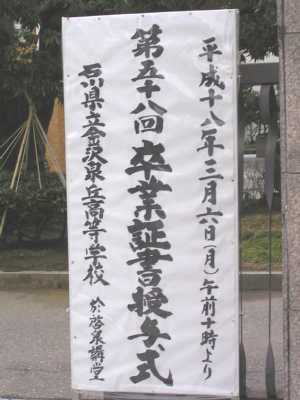 平成十八年三月六日(月)午前十時より
第五十八回卒業証書授与式
石川県立金沢泉丘高等学校 於啓泉講堂